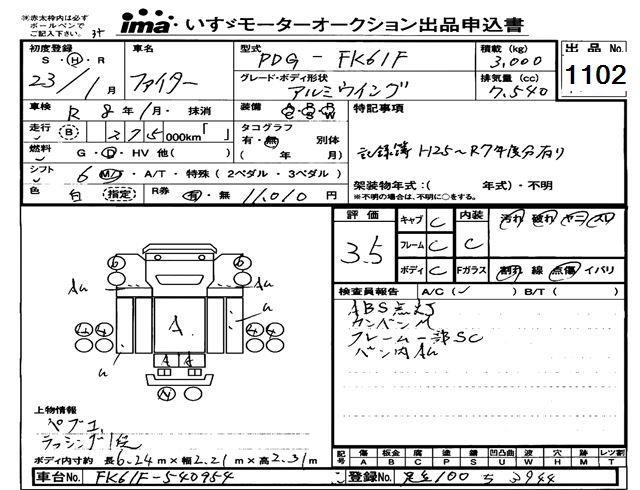 ※赤太枠内は必ず
ボールペンで
ご記入下さい。
ima いすゞモーターオークション出品申込書
初度登録 S・H・R 23/1月
車名 ファイター
型式 PDG-FK61F
積載(kg) 3,000
出品No. 1102
グレード・ボディ形状 アルミウイング
排気量(cc) 7,540
車検 R 8年1月・抹消
装備
特記事項
走行 B 275 000km「 」
タコグラフ 有・無 別体 ( 年 月)
記録簿 H25~R7年度分有り
燃料 G・D・HV 他( )
シフト 6 M/T・A/T・特殊(2ペダル・3ペダル)
架装物年式:( 年式)・不明
※不明の場合は、不明に○をする。
色 白 指定 R券 有・無 11,010円
評価 3.5
キャブ C 内装 C 汚れ 破れ ヤニ スリ
フレーム C
ボディ C Fガラス 割れ 線 点傷 イバリ
検査員報告 A/C(✓) B/T( )
ABS点灯
カンバンM
フレーム一部SC
バン内AU
6 6
AU AU
A
4 4 4 4
U U
A A
N
上物情報
ペプエ
ラッシング1段
ボディ内寸約 長6.24m×幅2.21m×高2.31m
記号 傷A 板金B 腐C 塗P 錆S 凹凸曲U 波W 穴H 跡M レツ割T
車台No. FK61F-540954
登録No. 足立100ち3944